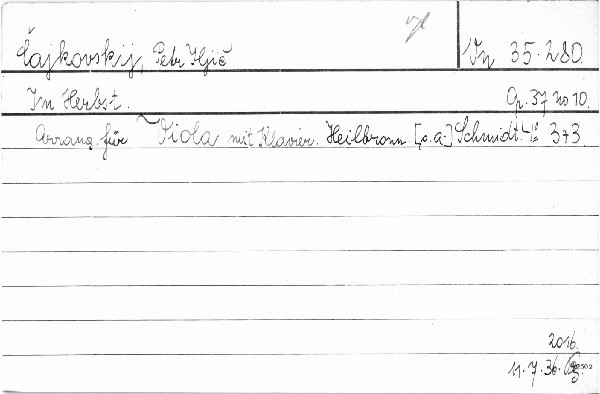 Čajkovskij, Petr Iljič Vn 35.280.
Im Herbst. Op. 37 no 10.
Arrang. für Viola mit Klavier. Heilbronn [s.a.] Schmidt. 373
2016.
11.7.36.